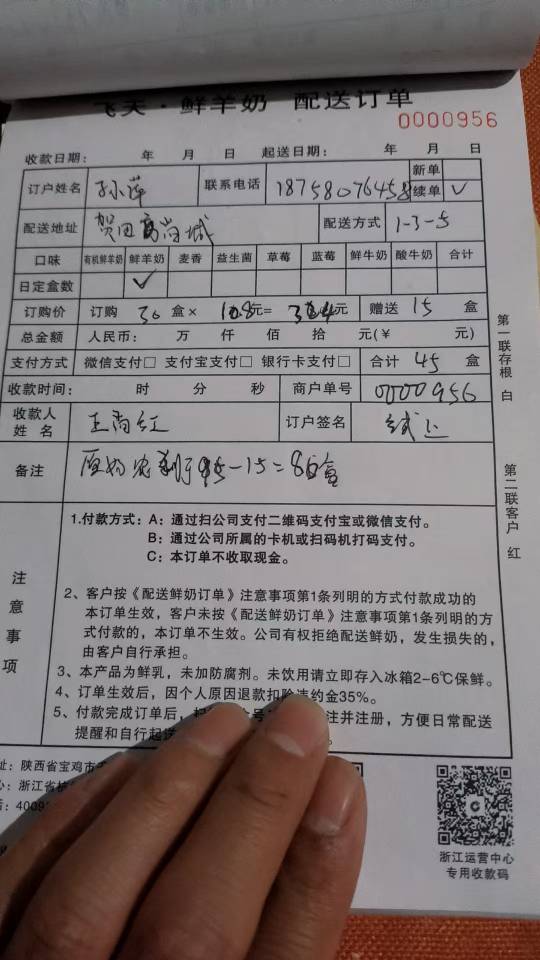 飞天·鲜羊奶 配送订单
0000956
收款日期： 年 月 日 起送日期： 年 月 日
订户姓名 联系电话 18758076458 新单
续单 ✓
配送地址 贺田尚城 配送方式 1-3-5
口味 有机鲜羊奶 鲜羊奶 麦香 益生菌 草莓 蓝莓 鲜牛奶 酸牛奶 合计
日定盒数 ✓
订购价 订购 30 盒× 10.8元= 324元 赠送 15 盒
总金额 人民币： 万 仟 佰 拾 元(￥ 元)
支付方式 微信支付□ 支付宝支付□ 银行卡支付□ 合计 45 盒
收款时间： 时 分 秒 商户单号 0000956
收款人姓名 王尚红 订户签名
备注 -15=8 盒
注意事项
1.付款方式：A：通过扫公司支付二维码支付宝或微信支付。
B：通过公司所属的卡机或扫码机打码支付。
C：本订单不收取现金。
2、客户按《配送鲜奶订单》注意事项第1条列明的方式付款成功的
本订单生效，客户未按《配送鲜奶订单》注意事项第1条列明的方
式付款的，本订单不生效。公司有权拒绝配送鲜奶，发生损失的，
由客户自行承担。
3、本产品为鲜乳，未加防腐剂。未饮用请立即存入冰箱2-6℃保鲜。
4、订单生效后，因个人原因退款扣除违约金35%。
5、付款完成订单后， 注并注册，方便日常配送
提醒和自行起送
第一联存根 白
第二联客户 红
址：陕西省宝鸡市
心：浙江省杭
浙江运营中心
专用收款码